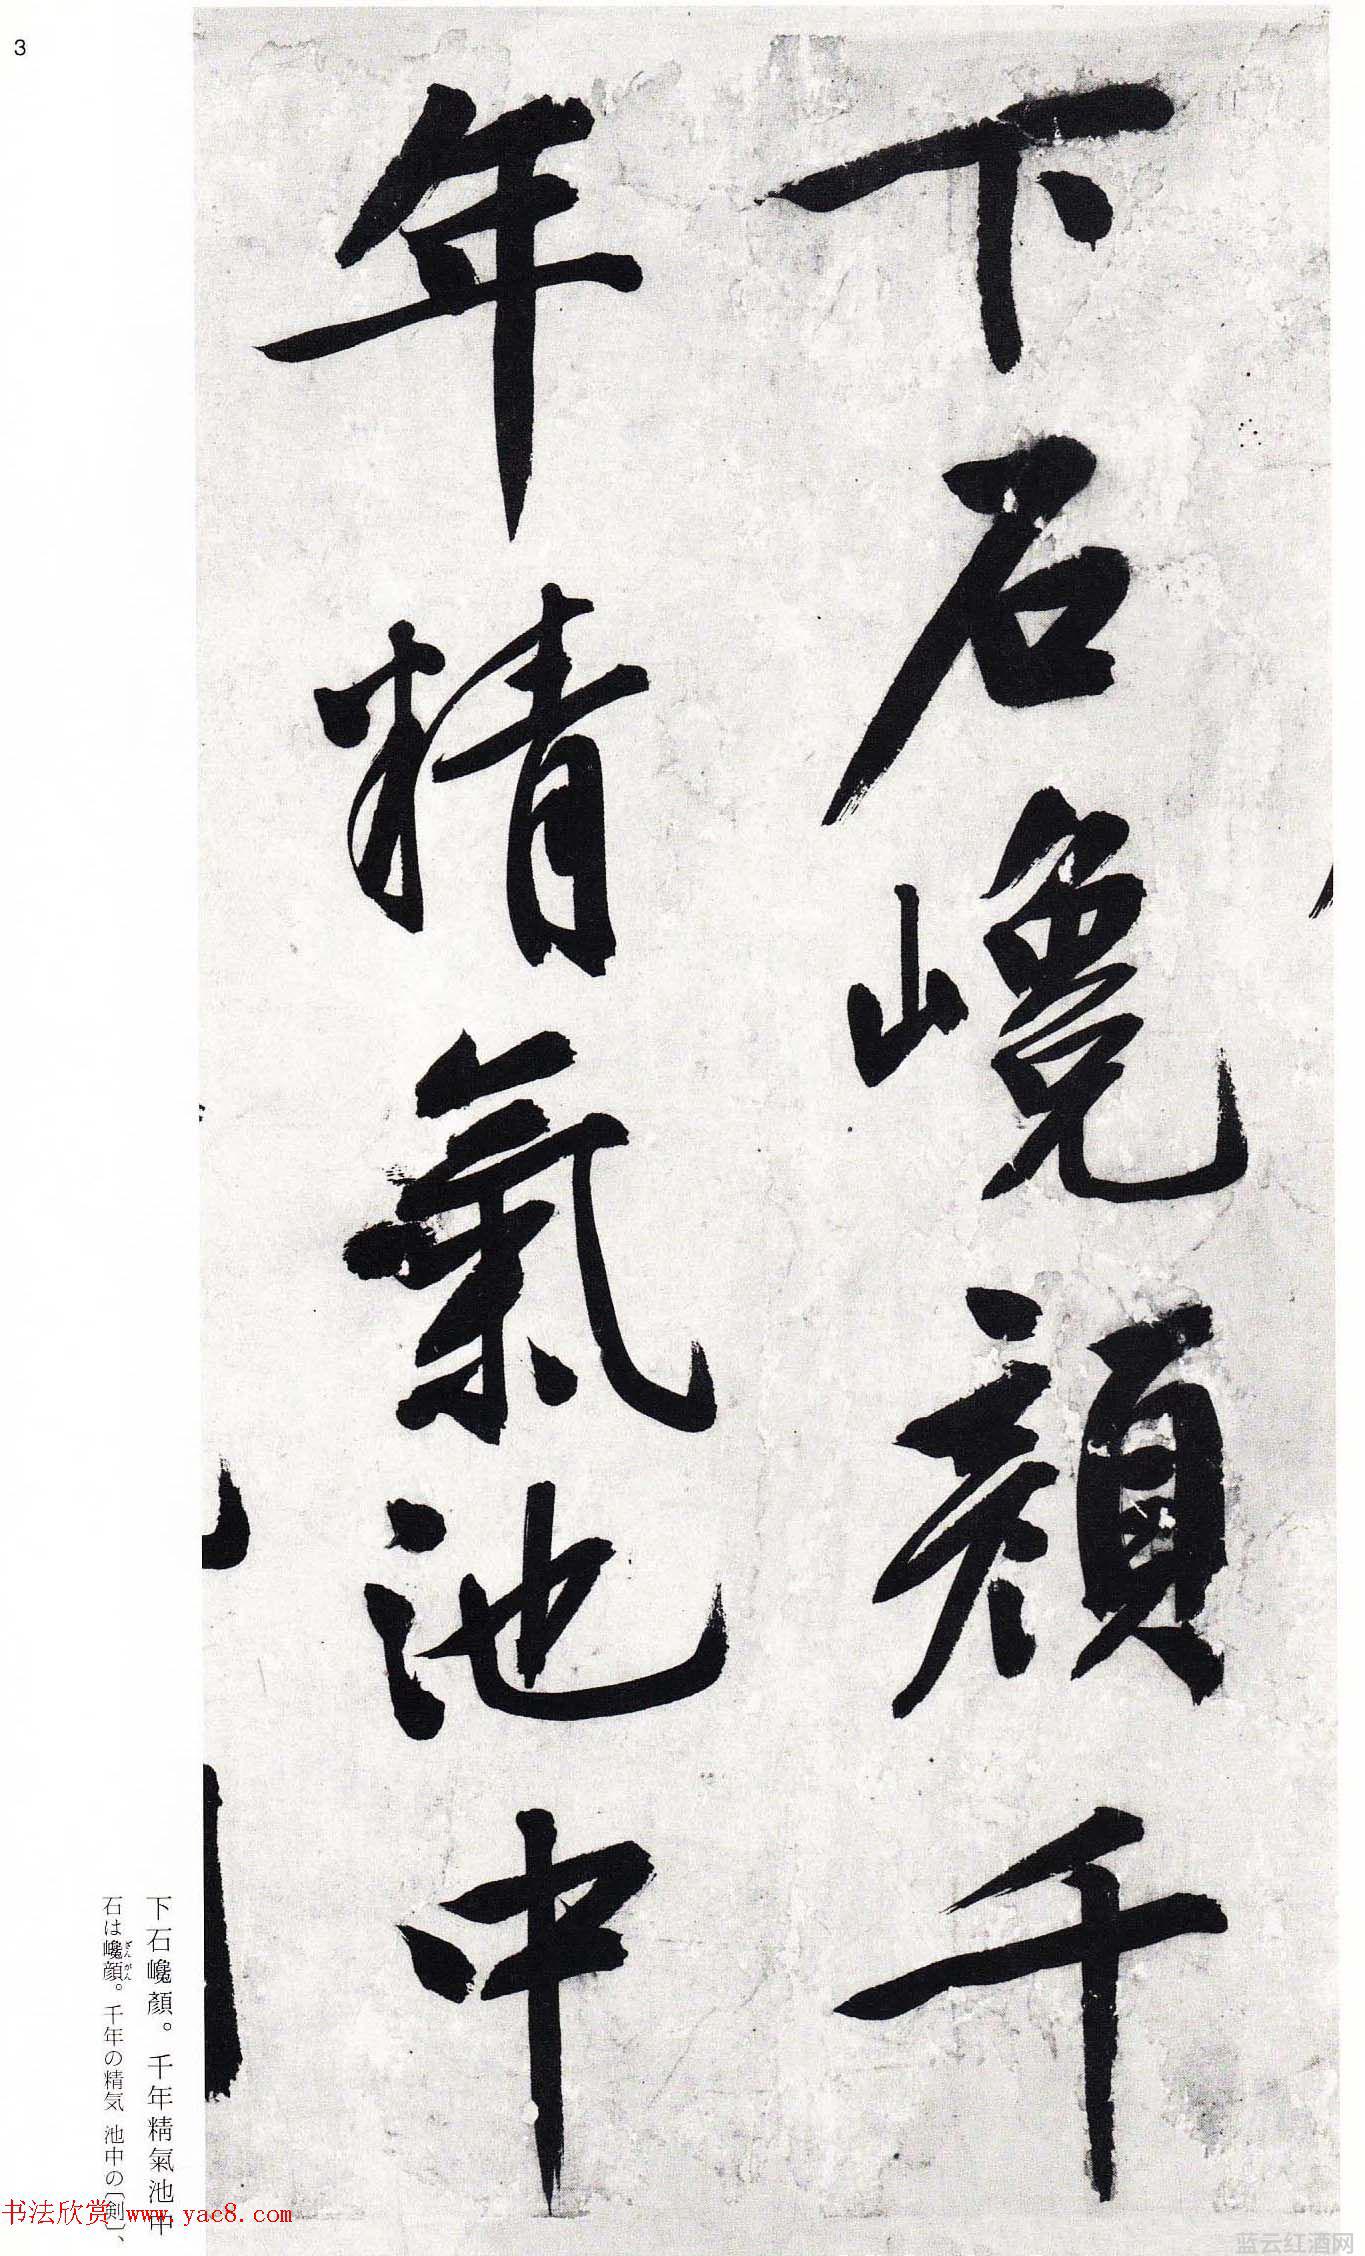 3
下石巉顔千
年精氣池中
下石巉顏。千年精氣池中
石は巉顔。千年の精気 池中の〔剣〕、
ざん がん
书法欣赏 www.yac8.com
蓝云红酒网